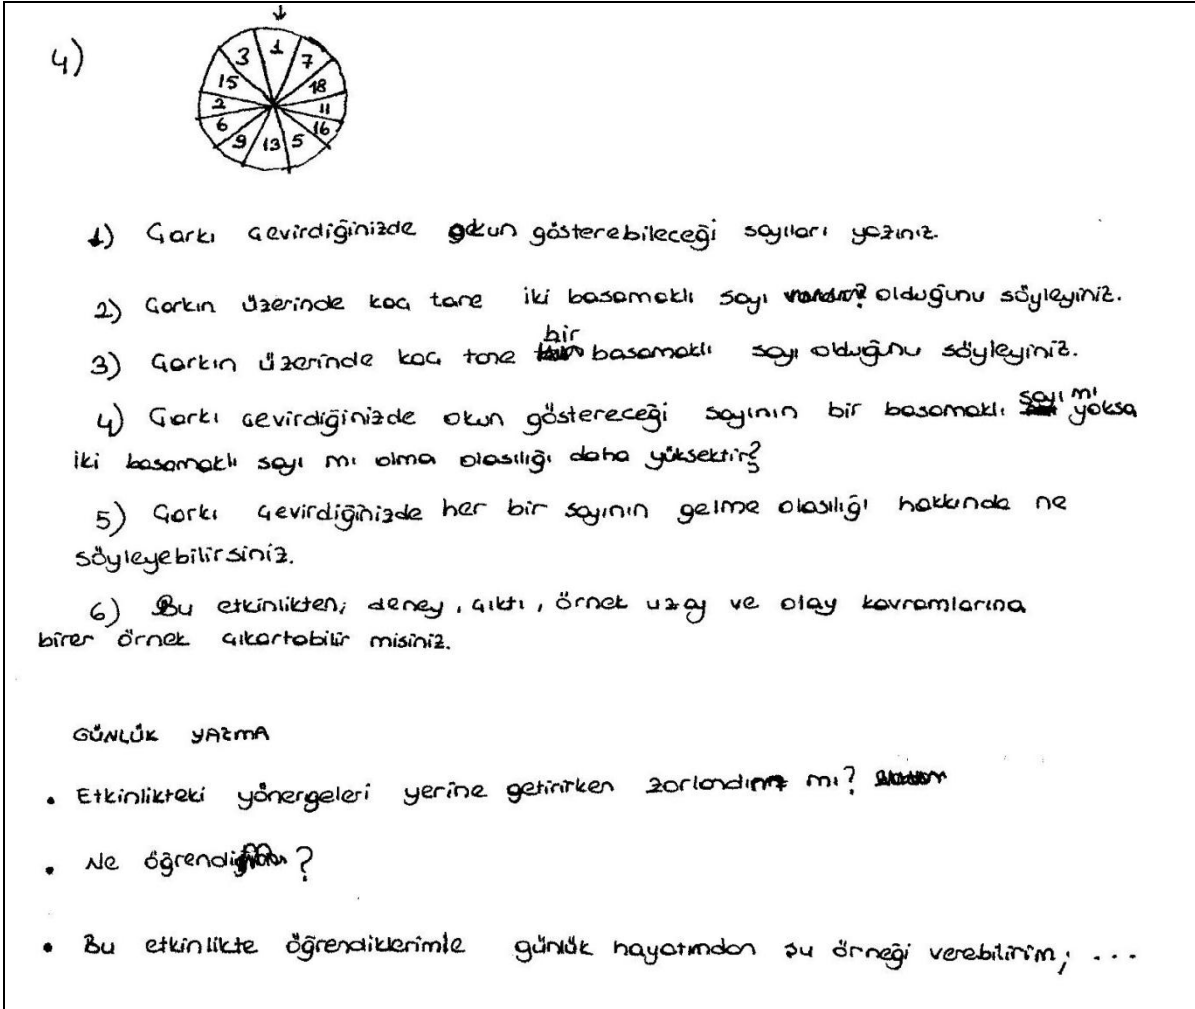 4)
1
7
18
11
16
5
13
9
6
2
15
3
1) Çarkı çevirdiğinizde okun gösterebileceği sayıları yazınız.
2) Çarkın üzerinde kaç tane iki basamaklı sayı olduğunu söyleyiniz.
3) Çarkın üzerinde kaç tane bir basamaklı sayı olduğunu söyleyiniz.
4) Çarkı çevirdiğinizde okun göstereceği sayının bir basamaklı sayı mı yoksa
iki basamaklı sayı mı olma olasılığı daha yüksektir?
5) Çarkı çevirdiğinizde her bir sayının gelme olasılığı hakkında ne
söyleyebilirsiniz.
6) Bu etkinlikten; deney, çıktı, örnek uzay ve olay kavramlarına
birer örnek çıkartabilir misiniz.
GÜNLÜK YAZMA
• Etkinlikteki yönergeleri yerine getirirken mı?
• Ne ?
• Bu etkinlikte öğrendiklerimle günlük hayatımdan şu örneği verebilirim; ...